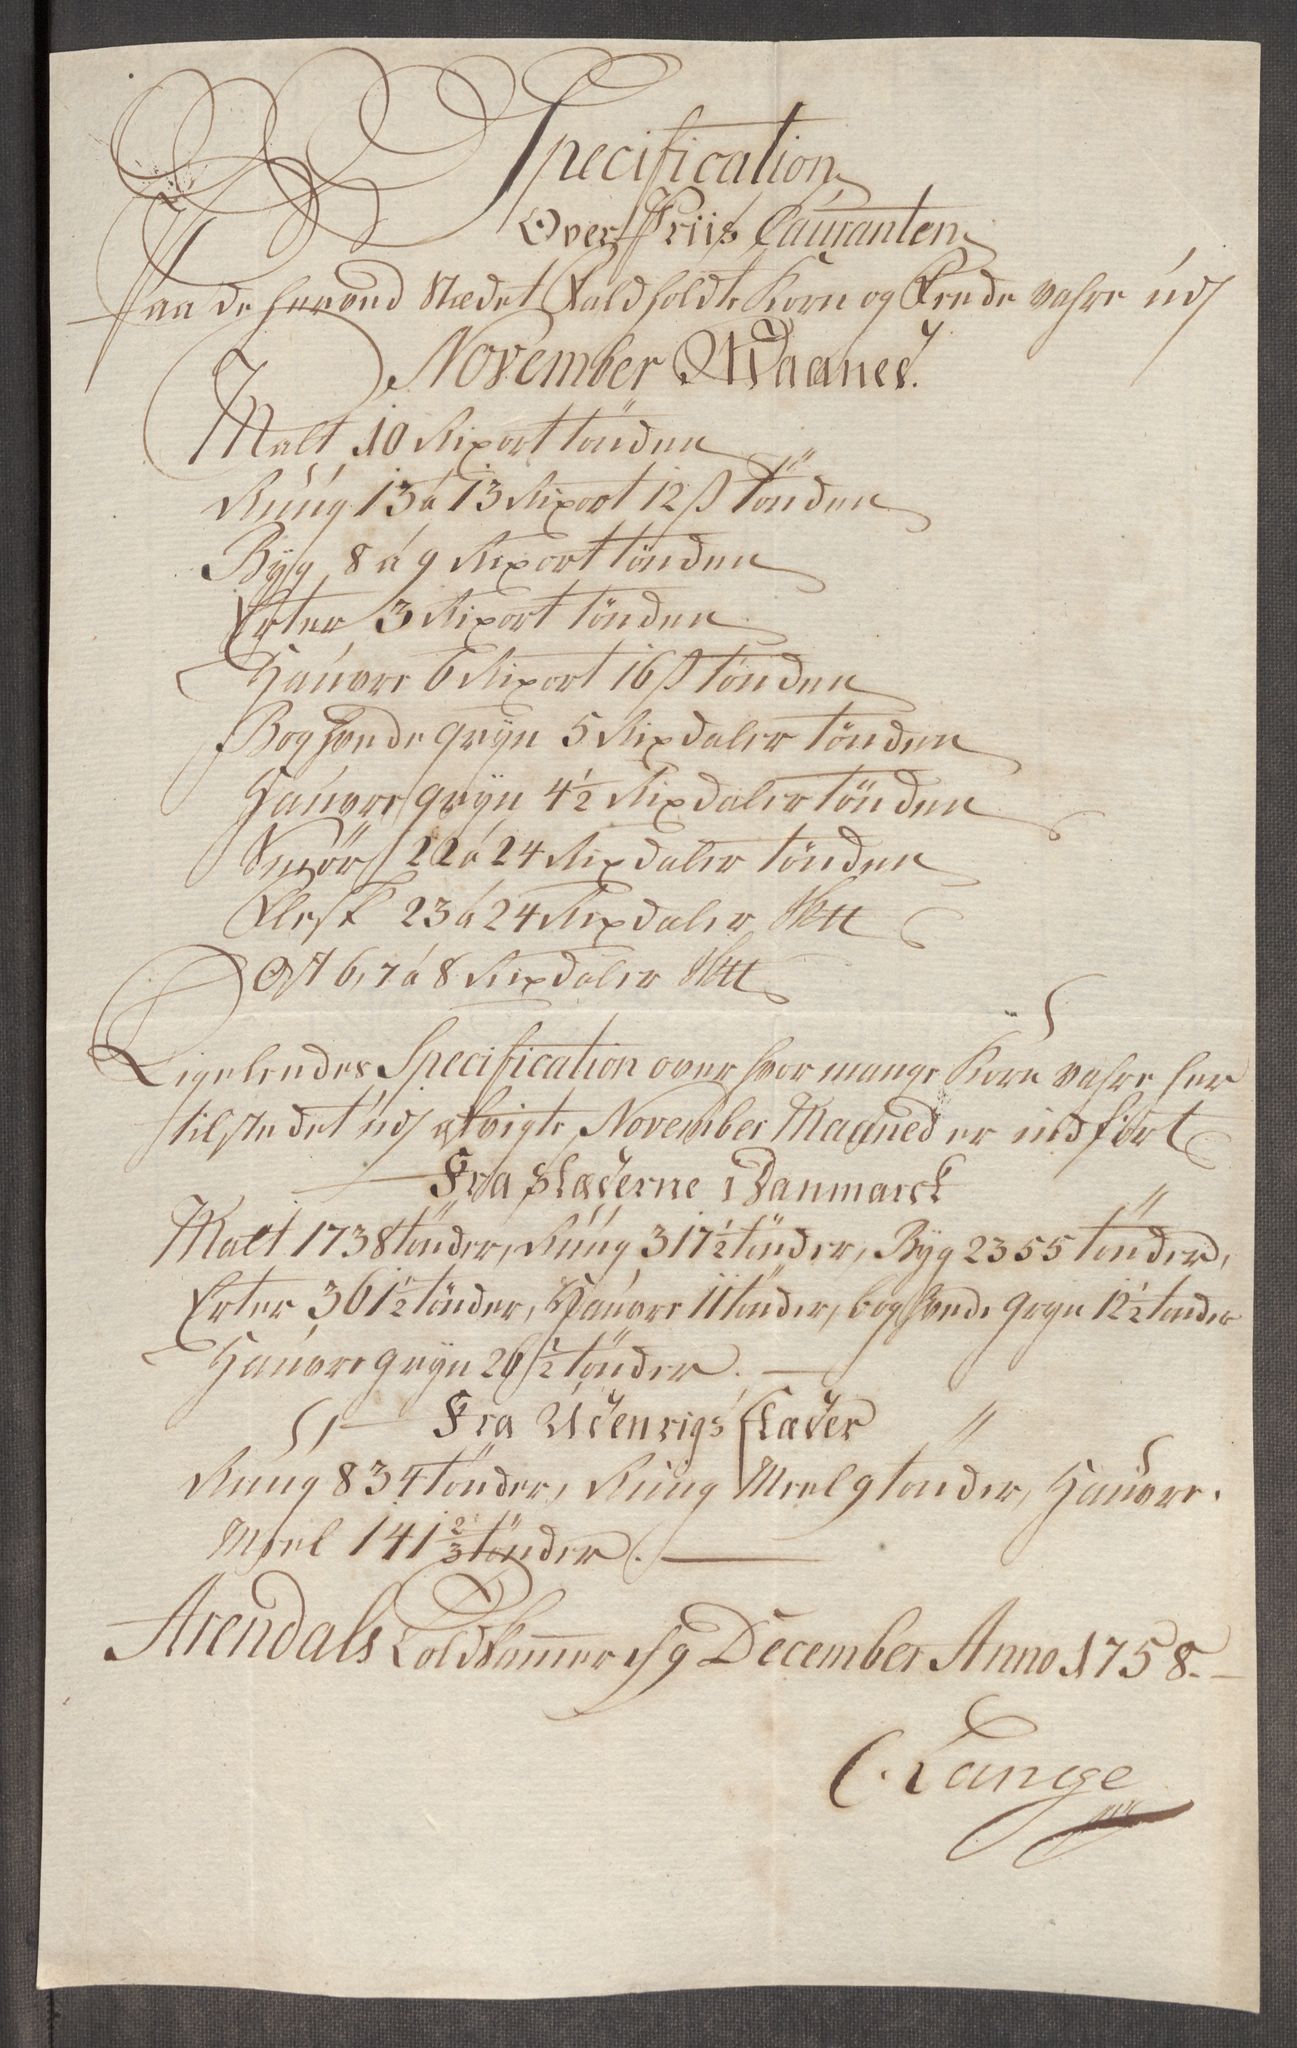 Specification
Over Priis Couranten
Paa de herved Stædet Faldholdte Korn og Fende vahre udj
November Maaned.
Malt 10 Rixort tönden
Rúúg 13 á 13 Rixort 12 ß tönden
Byg 8 á 9 Rixort tönden
Erter 3 Rixort tönden
Haúvre 6 Rixort 16 ß tönden
Boghvede gryn 5 Rixdaler tönden
Haúvre gryn 4½ Rixdaler tönden
Smör 22 á 24 Rixdaler tönden
Flesk 23 á 24 Rixdaler
Ost 6, 7 á 8 Rixdaler
Ligeleedes Specification over hvor mange Korn vahre her
til stedet udj afvigte November Maaned er indfört
Fra Stæderne i Danmarck
Malt 1738 tönder, Rúúg 317½ tönder, Byg 2355 tönder,
Erter 361½ tönder, Haúvre 11 tönder, boghvede gryn 12½ tönder
Haúvre gryn 26½ tönder. —
Fra Udenrigs Stæder
Rúúg 834 tönder, Rúúg Meel 9 tönder, Haúvre
Meel 141⅔ tönder. —
Arendals Toldkammer d 9 December Anno 1758. —
C. Lange